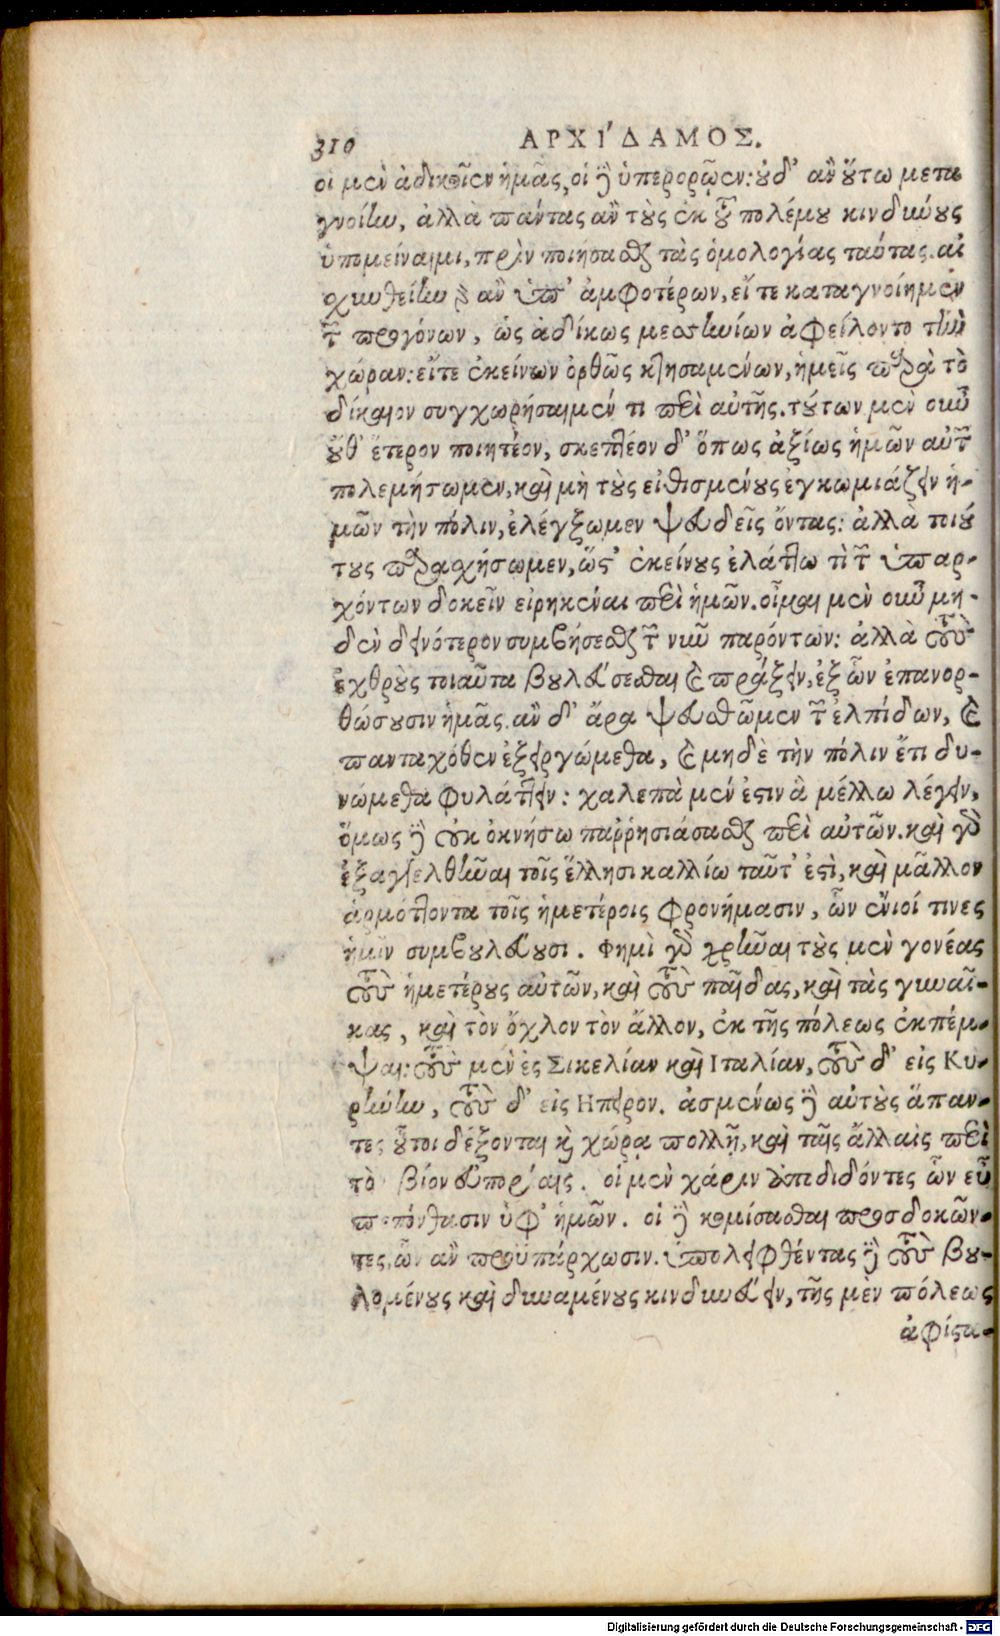 310 ΑΡΧΙ´ΔΑΜΟΣ.
οἱ μὲν ἀδικοῖεν ἡμᾶς, οἱ δὲ ὑπερορῷεν: οὐδ' ἂν οὕτω μετα
γνοίην, ἀλλὰ πάντας ἂν τοὺς ἐκ τοῦ πολέμου κινδύνους
ὑπομείναιμι, πρὶν ποιήσασθαι τὰς ὁμολογίας ταύτας. αἰ
σχυνθείην γὰρ ἂν ὑπ' ἀμφοτέρων, εἴ τε καταγνοίημεν
τῶν προγόνων, ὡς ἀδίκως μεσσηνίων ἀφείλοντο τὴν
χώραν: εἴτε ἐκείνων ὀρθῶς κτησαμένων, ἡμεῖς παρὰ τὸ
δίκαιον συγχωρήσαιμέν τι περὶ αὐτῆς. τούτων μὲν οὖν
οὐθ' ἕτερον ποιητέον, σκεπτέον δ' ὅπως ἀξίως ἡμῶν αὐτῶν
πολεμήσωμεν, καὶ μὴ τοὺς εἰθισμένους ἐγκωμιάζειν ἡ-
μῶν τὴν πόλιν, ἐλέγξωμεν ψευδεῖς ὄντας: ἀλλὰ τοιού
τους παρασχήσωμεν, ὥστ' ἐκείνους ἐλάττω τὶ τῶν ὑπαρ-
χόντων δοκεῖν εἰρηκέναι περὶ ἡμῶν. οἶμαι μὲν οὖν μη-
δὲν δεινότερον συμβήσεσθαι τῶν νῦν παρόντων: ἀλλὰ τοὺς
ἐχθροὺς τοιαῦτα βουλεύσεσθαι καὶ πράξειν, ἐξ ὧν ἐπανορ-
θώσουσιν ἡμᾶς. ἂν δ' ἄρα ψευσθῶμεν τῶν ἐλπίδων, καὶ
πανταχόθεν ἐξειργώμεθα, καὶ μηδὲ τὴν πόλιν ἔτι δυ-
νώμεθα φυλάττειν: χαλεπὰ μέν ἐστιν ἃ μέλλω λέγειν,
ὅμως δὲ οὐκ ὀκνήσω παῤῥησιάσασθαι περὶ αὐτῶν. καὶ γὰρ
ἐξαγγελθῆναι τοῖς ἕλλησι καλλίω ταῦτ' ἐστὶ, καὶ μᾶλλον
ἁρμόττοντα τοῖς ἡμετέροις φρονήμασιν, ὧν ἔνιοί τινες
ἡμῖν συμβουλεύουσι. Φημὶ γὰρ χρῆναι τοὺς μὲν γονέας
τοὺς ἡμετέρους αὐτῶν, καὶ τοὺς παῖδας, καὶ τὰς γυναῖ-
κας, καὶ τὸν ὄχλον τὸν ἄλλον, ἐκ τῆς πόλεως ἐκπέμ-
ψαι: τοὺς μὲν ἐς Σικελίαν καὶ Ιταλίαν, τοὺς δ' εἰς Κυ-
ρήνην, τοὺς δ' εἰς Ηπειρον. ἀσμένως δὲ αὐτοὺς ἅπαν-
τες οὗτοι δέξονται καὶ χώρᾳ πολλῇ, καὶ ταῖς ἄλλαις περὶ
τὸ βίον εὐπορίαις. οἱ μὲν χάριν ἀποδιδόντες ὧν εὖ
πεπόνθασιν ὑφ' ἡμῶν. οἱ δὲ κομίσασθαι προσδοκῶν-
τες, ὧν ἂν προϋπάρχωσιν. ὑπολειφθέντας δὲ τοὺς βου-
λομένους καὶ δυναμένους κινδυνεύειν, τῆς μὲν πόλεως
ἀφίστα-
Digitalisierung gefördert durch die Deutsche Forschungsgemeinschaft - DFG